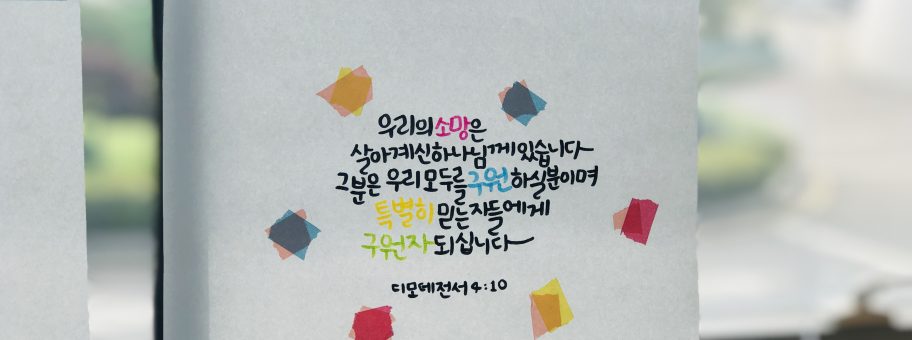 우리의 소망은
살아계신 하나님께 있습니다
그분은 우리 모두를 구원 하실분이며
특별히 믿는 자들에게
구원자 되십니다
디모데전서 4:10